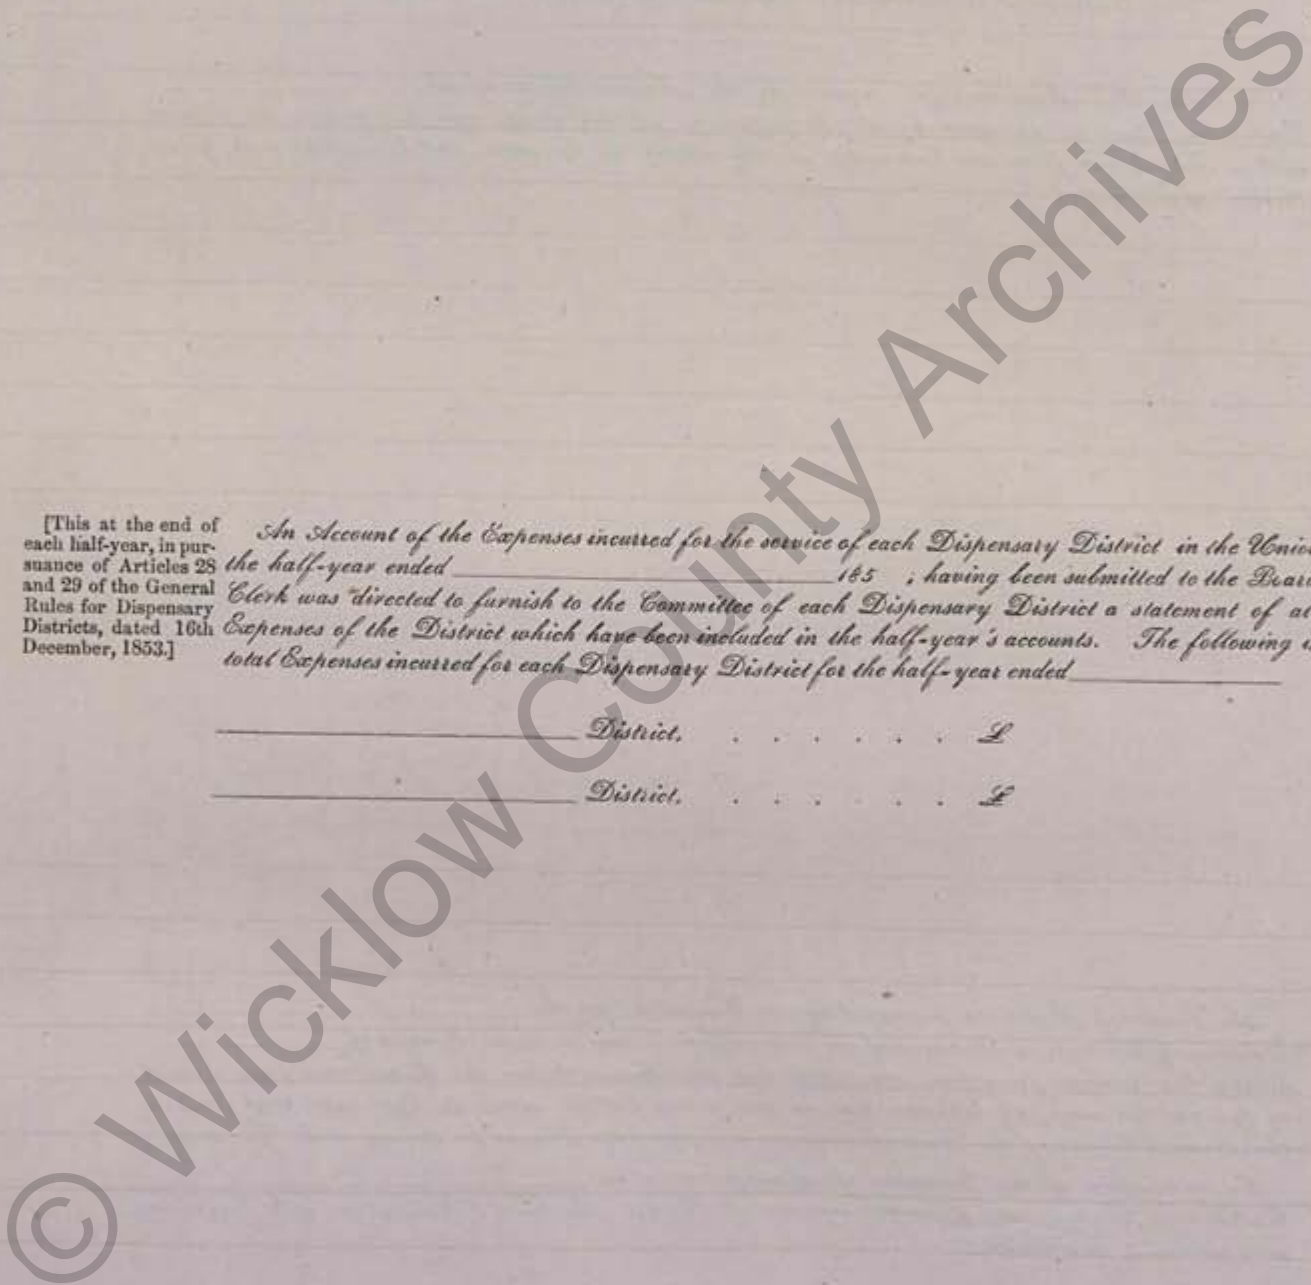 [This at the end of
each half-year, in pur-
suance of Articles 28
and 29 of the General
Rules for Dispensary
Districts, dated 16th
December, 1853.]
An Account of the Expenses incurred for the service of each Dispensary District in the Union
the half-year ended 185 ; having been submitted to the Boar
Clerk was directed to furnish to the Committee of each Dispensary District a statement of al
Expenses of the District which have been included in the half-year's accounts. The following i
total Expenses incurred for each Dispensary District for the half-year ended
District. . . . . . . £
District. . . . . . . £
© Wicklow County Archives